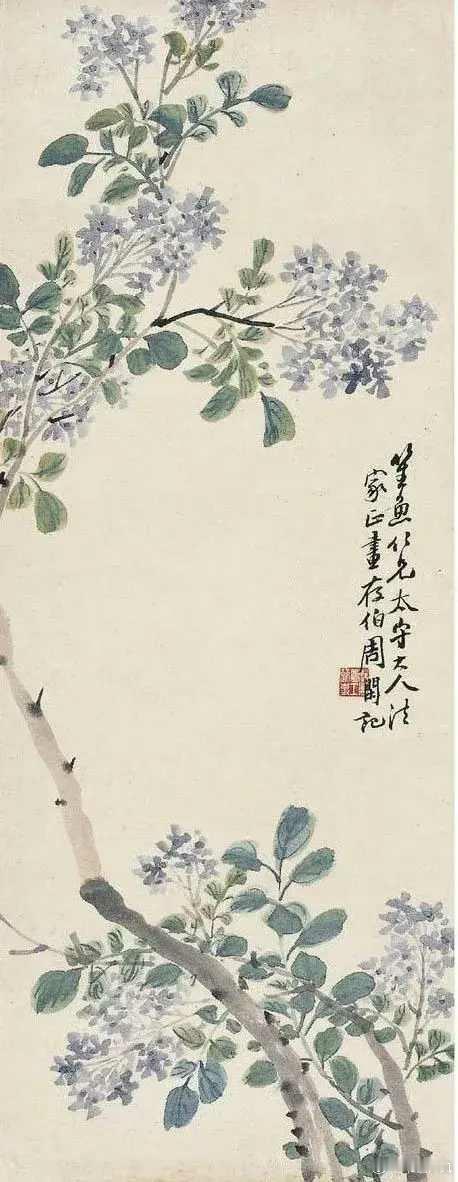 笙魚仁兄太守大人法
家正畫存伯周閑記